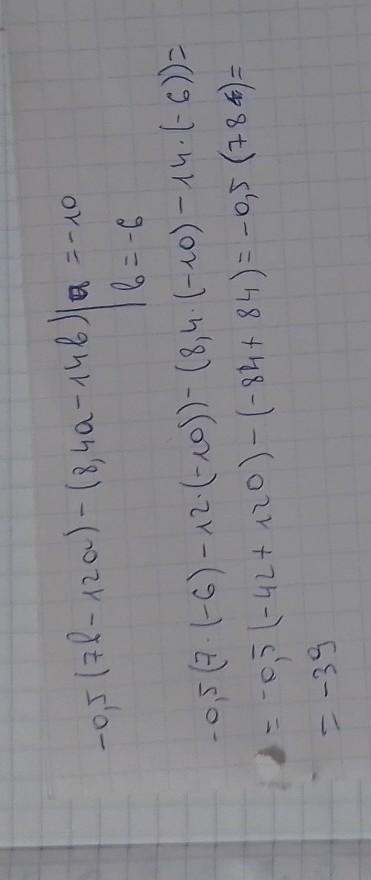 -0,5(7b-12a)-(8,4a-14b)| a=-10
b=-6
-0,5(7·(-6)-12·(-10))-(8,4·(-10)-14·(-6))=
=-0,5(-42+120)-(-84+84)=-0,5(78)=
=-39